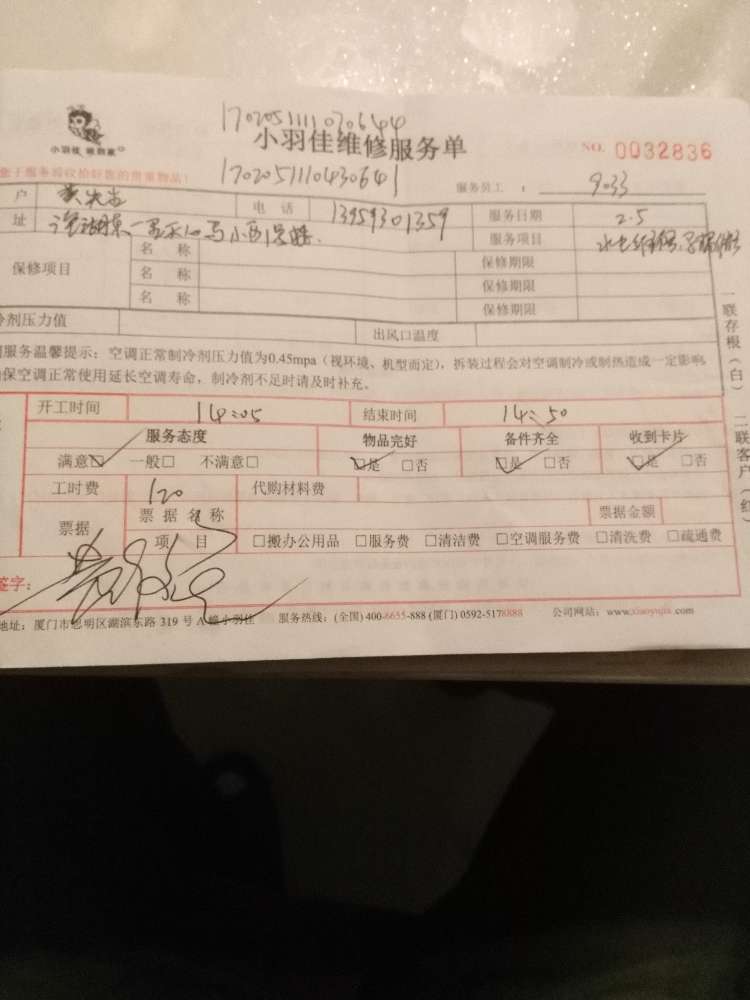 1702051111070644
小羽佳维修服务单
NO. 0032836
小羽佳
170205110430641
服务员工： 9033
户 黄先生 电话 13959301359 服务日期 2.5
址 服务项目
保修项目 名称 保修期限
名称 保修期限
名称 保修期限
冷剂压力值 出风口温度
服务温馨提示：空调正常制冷剂压力值为0.45mpa（视环境、机型而定），拆装过程会对空调制冷或制热造成一定影响
保空调正常使用延长空调寿命，制冷剂不足时请及时补充。
开工时间 14:05 结束时间 14:50
服务态度 物品完好 备件齐全 收到卡片
满意☑ 一般□ 不满意□ ☑是 □否 ☑是 □否 ☑是 □否
工时费 120 代购材料费
票据 票据名称 票据金额
项目 □搬办公用品 □服务费 □清洁费 □空调服务费 □清洗费 □疏通费
签字：
地址：厦门市思明区湖滨东路 319 号 A 幢小羽佳 服务热线：(全国) 400-6655-888 (厦门) 0592-5178888 公司网站：www.xiaoyujia.com
一联存根（白）
二联客户（红）